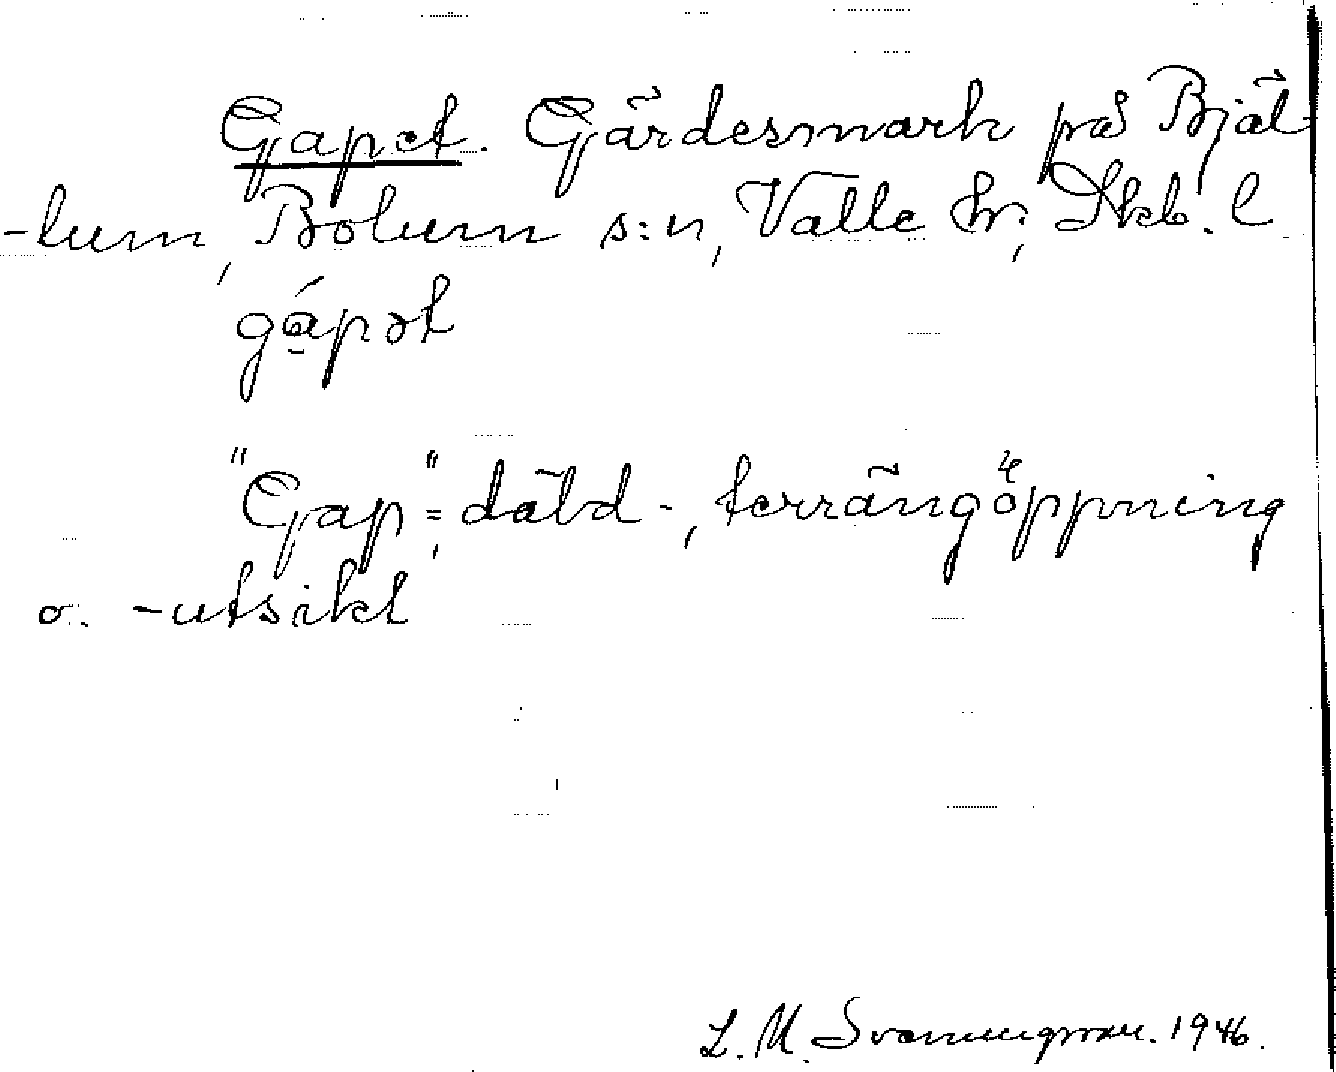 Gapet. Gärdesmark på Bjäl-
-lum, Bolum s:n, Valle hr; Skb. l
gá̱pət
"Gap" = däld-, terrängöppning
o. -utsikt
L. M. Svenungsson. 1946.